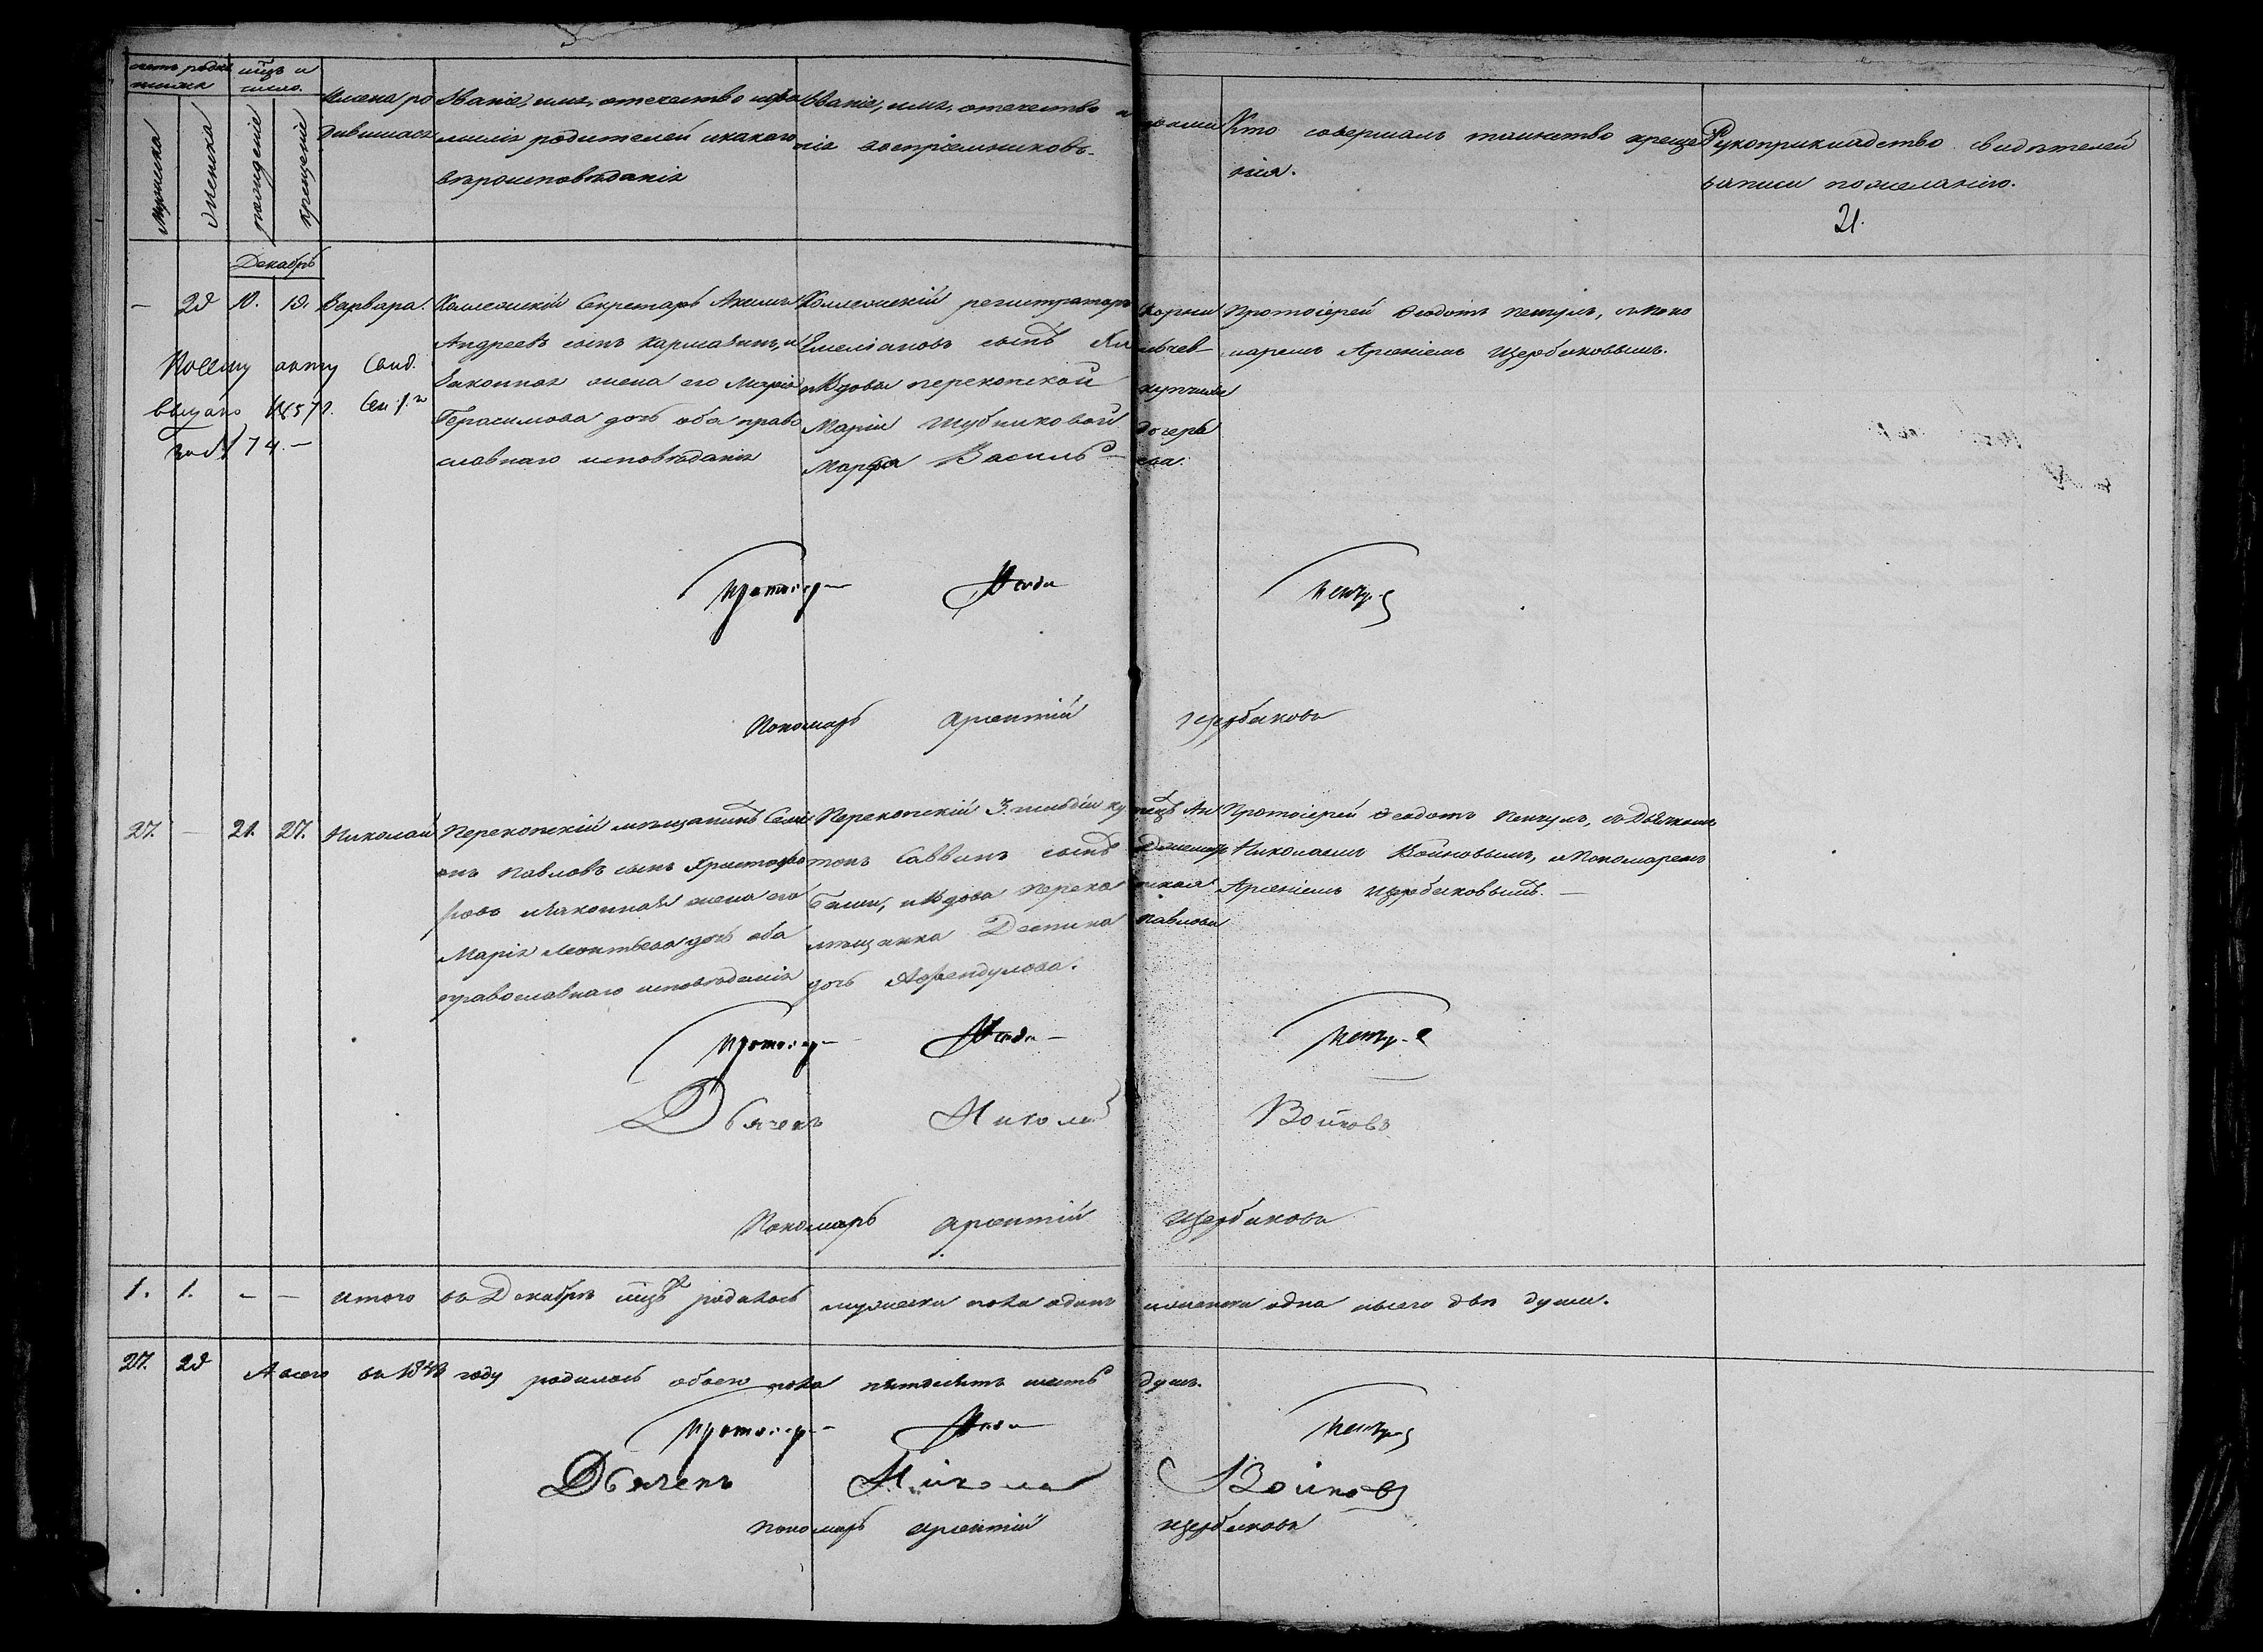 счетъ родив
шихся
мѣцъ и
число.
Мужеска
Женска
рожденіе
крещеніе
Имена ро
дившихся
Званіе, имя, отечество и фа
милія родителей и какого
вѣроисповѣданія
Званіе, имя, отечество и фами
лія воспріемниковъ.
Кто совершалъ таинство креще
нія.
Рукоприкладство свидѣтелей
записи по желанію.
21.
Декабрь
— 29 10. 19. Варвара.
Коллежскій Секретарь Акимъ
Андреевъ сынъ Кармазинъ, и
Законная жена его Марія
Герасимова дочь оба право
славнаго исповѣданія
Коллежскій регистраторъ Корни
Емеліановъ сынъ
и Вдова перекопской купчихи
Маріи Шубниковой дочерь
Марфа Василь ева.
Протоіерей Ѳеодотъ Ченгулъ, съ Поно
маремъ Арсеніемъ Щербаковымъ.
По Сему акту Свид.
выдано 1857 г. Сен.
за № 74. —
Протоіер Ѳеодо
Пономарь Арсентій Щербаковъ
27. — 21. 27. Николай
Перекопскій мѣщанинъ Семе
онъ Павловъ сынъ Христофо
ровъ и Законная жена его
Марія Леонтьева дочь оба
православнаго исповѣданія
Перекопскій 3. гильдіи купецъ Ан
тонъ Саввинъ сынъ
и Вдова Переко пская
мѣщанка Деспина Павлова
дочь Афендулова.
Протоіерей Ѳеодотъ Ченгулъ, съ Дьячкомъ
Николаемъ Войновымъ, и Пономаремъ
Арсеніемъ Щербаковымъ. —
Протоіер Ѳеодо
Дьячекъ Николай Войновъ
Пономарь Арсентій Щербаковъ
1. 1. — — Итого въ Декабрѣ мѣцѣ родилось мужеска пола одинъ женска одна всего двѣ души.
27. 29 А всего въ году родилось обоего пола пятьдесятъ шесть душъ.
Протоіер Ѳеодо
Дьячекъ Николай Войновъ
Пономарь Арсентій Щербаковъ